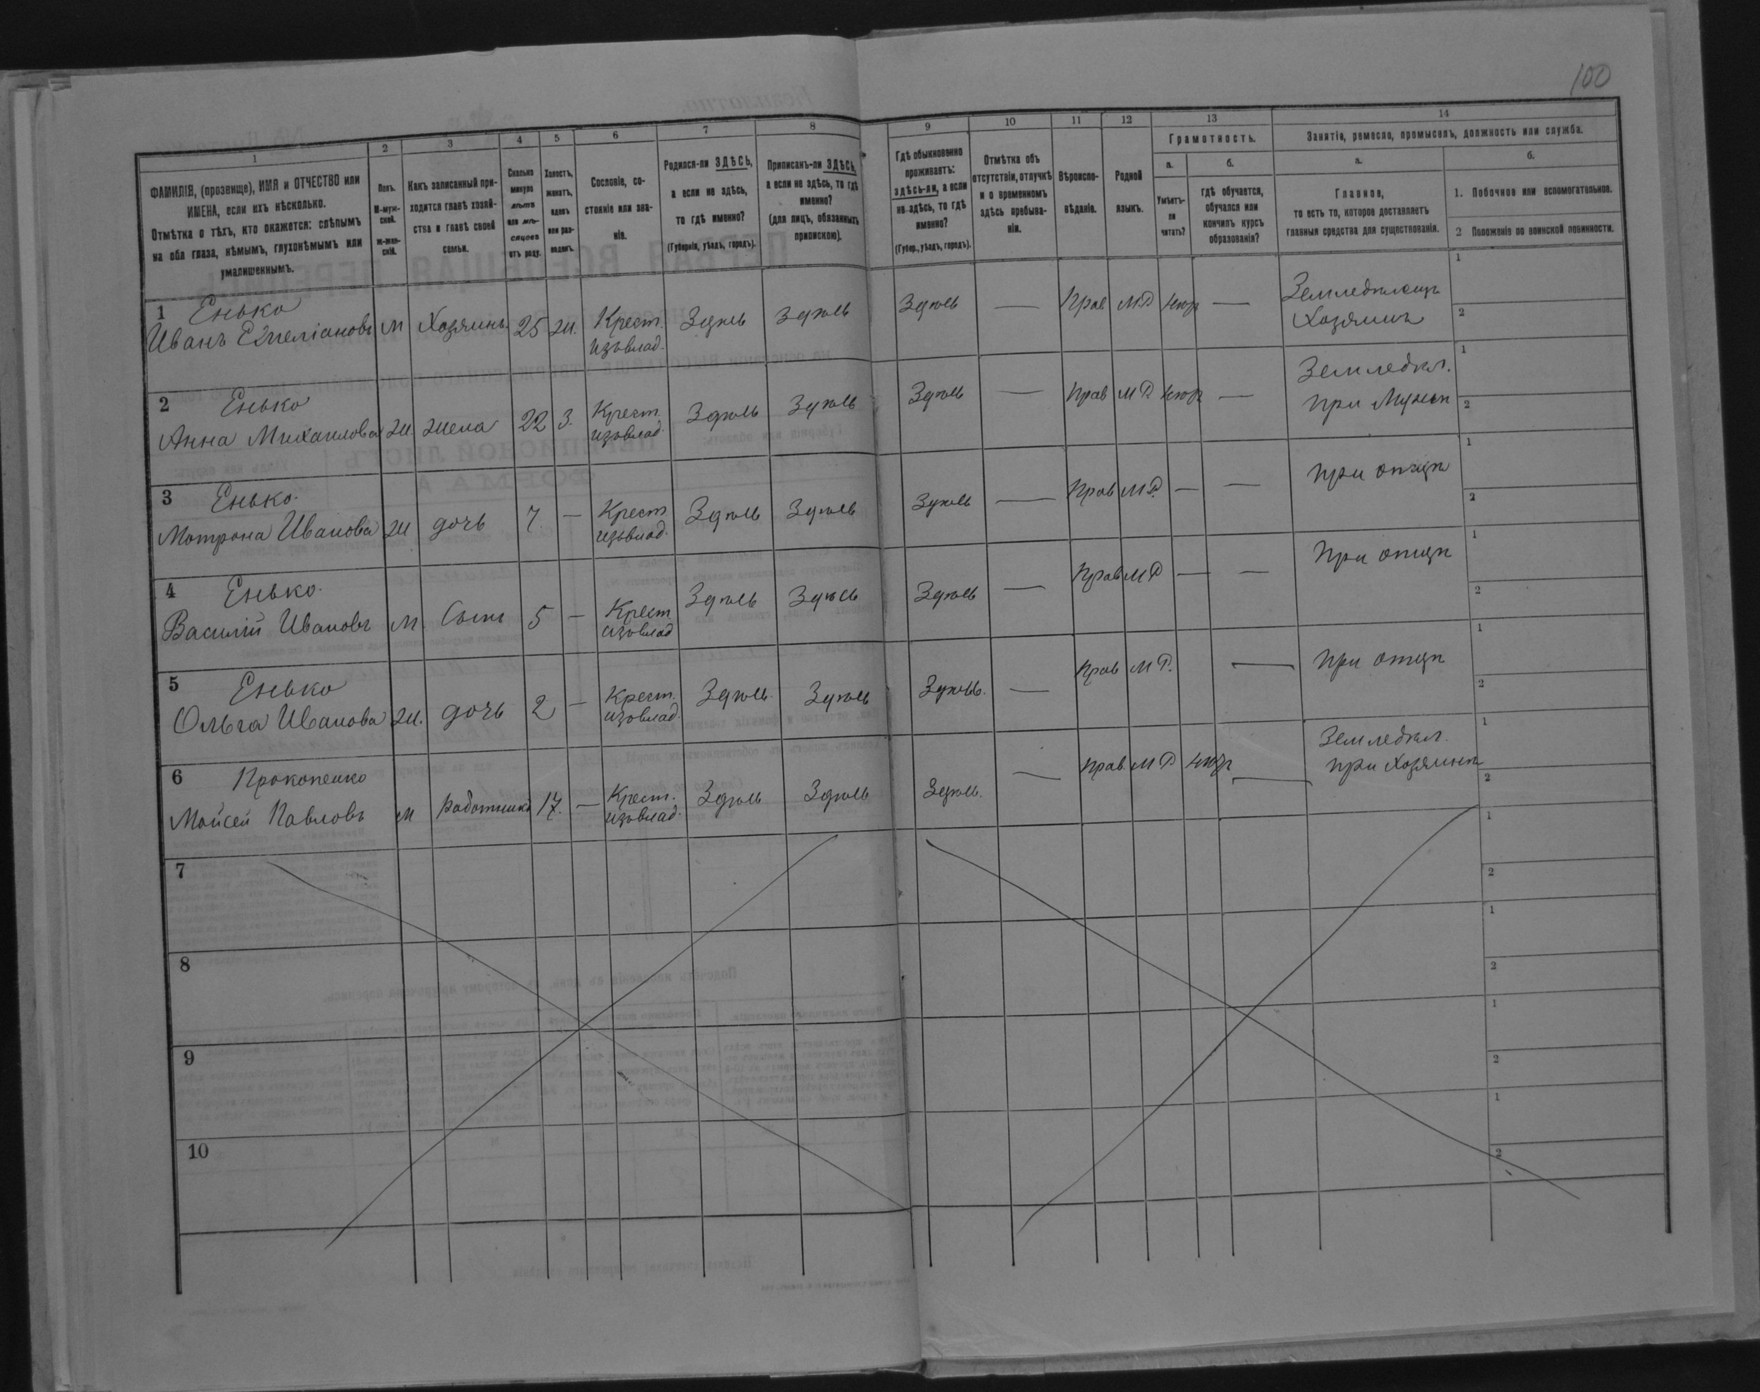 100
1
ФАМИЛІЯ, (прозвище), ИМЯ и ОТЧЕСТВО или
ИМЕНА, если ихъ нѣсколько.
Отмѣтка о тѣхъ, кто окажется: слѣпымъ
на оба глаза, нѣмымъ, глухонѣмымъ или
умалишеннымъ.
2
Полъ.
М-муж-
ской.
ж-жен-
скій.
3
Какъ записанный при-
ходится главѣ хозяй-
ства и главѣ своей
семьи.
4
Сколько
минуло
лѣтъ
или мѣ-
сяцевъ
отъ роду.
5
Холостъ,
женатъ,
вдовъ
или раз-
веденъ.
6
Сословіе, со-
стояніе или зва-
ніе.
7
Родился-ли ЗДѢСЬ,
а если не здѣсь,
то гдѣ именно?
(Губернія, уѣздъ, городъ).
8
Приписанъ-ли ЗДѢСЬ,
а если не здѣсь, то гдѣ
именно?
(для лицъ, обязанныхъ
припискою).
9
Гдѣ обыкновенно
проживаетъ:
здѣсь-ли, а если
не здѣсь, то гдѣ
именно?
(Губер., уѣздъ, городъ).
10
Отмѣтка объ
отсутствіи, отлучкѣ
и о временномъ
здѣсь пребыва-
ніи.
11
Вѣроиспо-
вѣданіе.
12
Родной
языкъ.
13
Грамотность.
а.
Умѣетъ-
ли
читать?
б.
гдѣ обучается,
обучался или
кончилъ курсъ
образованія?
14
Занятіе, ремесло, промыселъ, должность или служба.
а.
Главное,
то есть то, которое доставляетъ
главныя средства для существованія.
б.
1. Побочное или вспомогательное.
2 Положеніе по воинской повинности.
1 Енько
Иванъ Емеліановъ м Хозяинъ 25 ж. Крест. Здѣсь Здѣсь Здѣсь — Прав М.Р. — Земледѣлецъ
изъ влад. Хозяинъ
1
2
2 Енько
Анна Михаилова ж. жена 22 З. Крест. Здѣсь Здѣсь Здѣсь — Прав М.Р. — Земледѣл.
изъ влад. при Мужѣ
1
2
3 Енько.
Мотрона Иванова ж дочь 7 — Крест Здѣсь Здѣсь Здѣсь — Прав М.Р. — — при отцѣ
изъ влад.
1
2
4 Енько.
Василій Ивановъ м. Сынъ 5 — Крест Здѣсь Здѣсь Здѣсь — Прав М.Р. — — При отцѣ
изъ влад
1
2
5 Енько
Ольга Иванова ж. дочь 2 — Крест. Здѣсь. Здѣсь Здѣсь. — Прав М.Р. — при отцѣ
изъ влад.
1
2
6 Прокопенко
Мойсей Павловъ м Работникъ 17. — Крест. Здѣсь Здѣсь Здѣсь. — Прав М.Р. — Земледѣл.
изъ влад. при Хозяинѣ
1
2
7
1
2
8
1
2
9
1
2
10
1
2